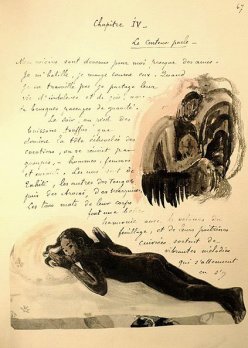 67
Chapitre IV_
Le Conteur parle_
Mes voisins sont devenus pour moi presque des amis.
Je m'habille, je mange comme eux. Quand
je ne travaille pas je partage leur
vie d'indolence et de joie, avec
de brusques passages de gravité.
Le soir, au pied des
buissons touffus que
domine la tête échevelée des
cocotiers, on se réunit par
groupes, _ hommes, femmes
et enfants. Les uns sont de
Tahiti, les autres des Tongas,
puis des Arorai, des Marquises.
Les tons mats de leur corps
font une belle
harmonie avec le velours du
feuillage, et de leurs poitrines
cuivrées sortent de
vibrantes mélodies
qui s'atténuent
en s'y